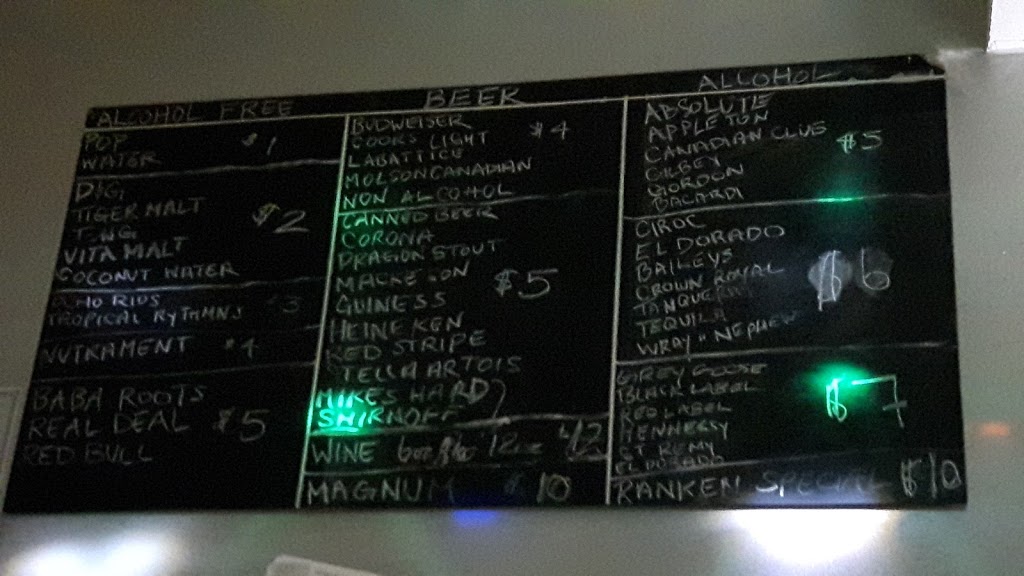 ALCOHOL FREE
POP
WATER
$1
DIG
TIGER MALT
TING
VITA MALT
COCONUT WATER
$2
RIOS
TROPICAL RYTHMNS
$3
NUTRAMENT $4
BABA ROOTS
REAL DEAL
RED BULL
$5
BEER
BUDWEISER
COORS LIGHT
LABATT ICE
MOLSON CANADIAN
NON ALCOHOL
$4
CANNED BEER
CORONA
DRAGON STOUT
MACKESON
GUINESS
HEINEKEN
RED STRIPE
STELLA ARTOIS
MIKES HARD
SMIRNOFF
$5
WINE
MAGNUM $10
ALCOHOL
ABSOLUTE
APPLETON
CANADIAN CLUB
GILBEY
GORDON
BACARDI
$5
CIROC
EL DORADO
BAILEYS
CROWN ROYAL
TANQUERAY
TEQUILA
WRAY "NEPHEW
$6
GREY GOOSE
BLACK LABEL
RED LABEL
HENNESSY
ST REMY
EL DORADO
$7
RANKEM SPECIAL $10